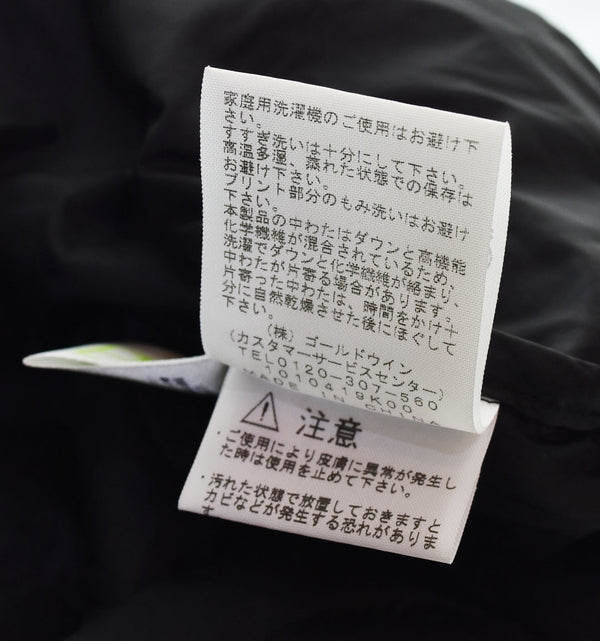 家庭用洗濯機のご使用はお避け下
さい。
すすぎ洗いは十分にして下さい。
高温多湿、蒸れた状態での保存は
お避け下さい。
プリント部分のもみ洗いはお避け
下さい。
本製品の中わたはダウンと高機能
化学繊維が混合されているため、
洗濯でダウンと化学繊維が絡まり、
中わたが片寄る場合があります。
片寄った中わたは、時間をかけ十
分に自然乾燥させた後にほぐして
下さい。
(株)ゴールドウイン
(カスタマーサービスセンター)
TEL0120-307-560
10104419K00
MADE IN CHINA
⚠ 注意
・ご使用により皮膚に異常が発生し
た時は使用を止めて下さい。
・汚れた状態で放置しておきますと
カビなどが発生する恐れがありま
す